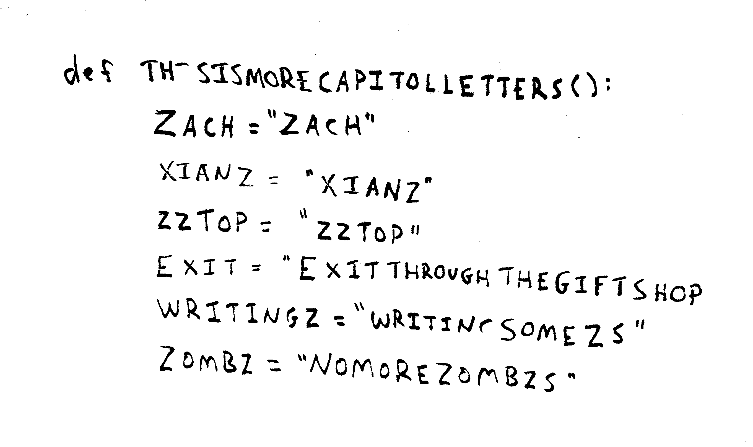 def THISISMORECAPITOLLETTERS():
ZACH = "ZACH"
XIANZ = "XIANZ"
ZZTOP = "ZZTOP"
EXIT = "EXITTHROUGHTHEGIFTSHOP
WRITINGZ = "WRITINGSOMEZS"
ZOMBZ = "NOMOREZOMBZS"